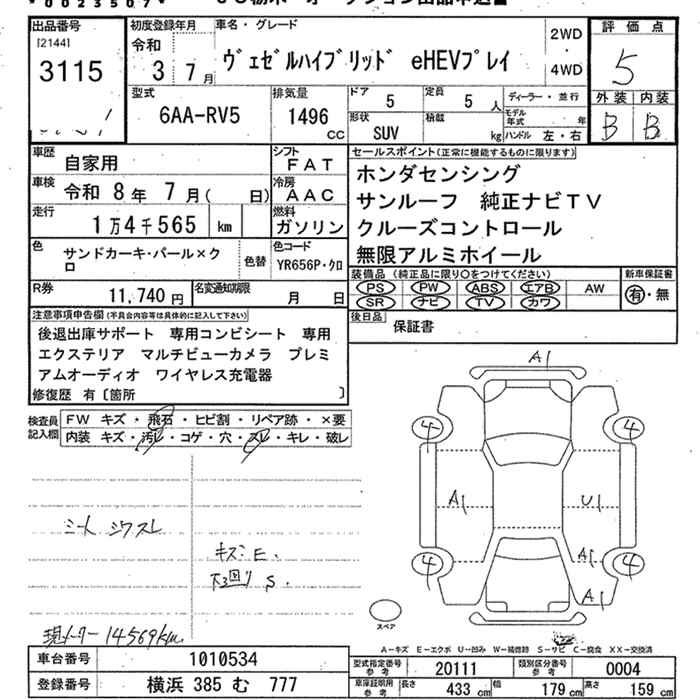 *0023507*
出品番号
[2144]
3115
初度登録年月
令和
3 7月
車名・グレード
ヴェゼルハイブリッド eHEVプレイ
2WD
・
4WD
評価点
5
外装 内装
B B
型式
6AA-RV5
排気量
1496
cc
ドア
5
定員
5 人
形状
SUV
積載
kg
ディーラー・並行
モデル年式 年
ハンドル 左・右
車歴
自家用
シフト
FAT
車検
令和 8年 7月( 日)
冷房
AAC
走行
1万4千565 km
燃料
ガソリン
色
サンドカーキ・パール×クロ
色替
色コード
YR656P・クロ
R券
11,740 円
名変通知期限
月 日
セールスポイント(正常に機能するものに限ります)
ホンダセンシング
サンルーフ 純正ナビTV
クルーズコントロール
無限アルミホイール
装備品(純正品に限り○をつけてください)
PS PW ABS エアB AW
SR ナビ TV カワ
新車保証書
有・無
後日品
保証書
注意事項申告欄(不具合内容等は具体的に記入して下さい)
後退出庫サポート 専用コンビシート 専用
エクステリア マルチビューカメラ プレミ
アムオーディオ ワイヤレス充電器
修復歴 有〔箇所 〕
検査員
記入欄
FW キズ・飛石・ヒビ割・リペア跡・×要
内装 キズ・汚レ・コゲ・穴・スレ・キレ・破レ
シート シワスレ
キズ E.
下回り S.
現メーター 14569km
A1
4 4
A1 U1
A1
4 4
A1
スペア
A-キズ E-エクボ U-凹み W-補修跡 S-サビ C-腐食 XX-交換済
車台番号
1010534
登録番号
横浜 385 む 777
型式指定番号
参考
20111
類別区分番号
参考
0004
車庫証明用
参考
長さ
433 cm
幅
179 cm
高さ
159 cm